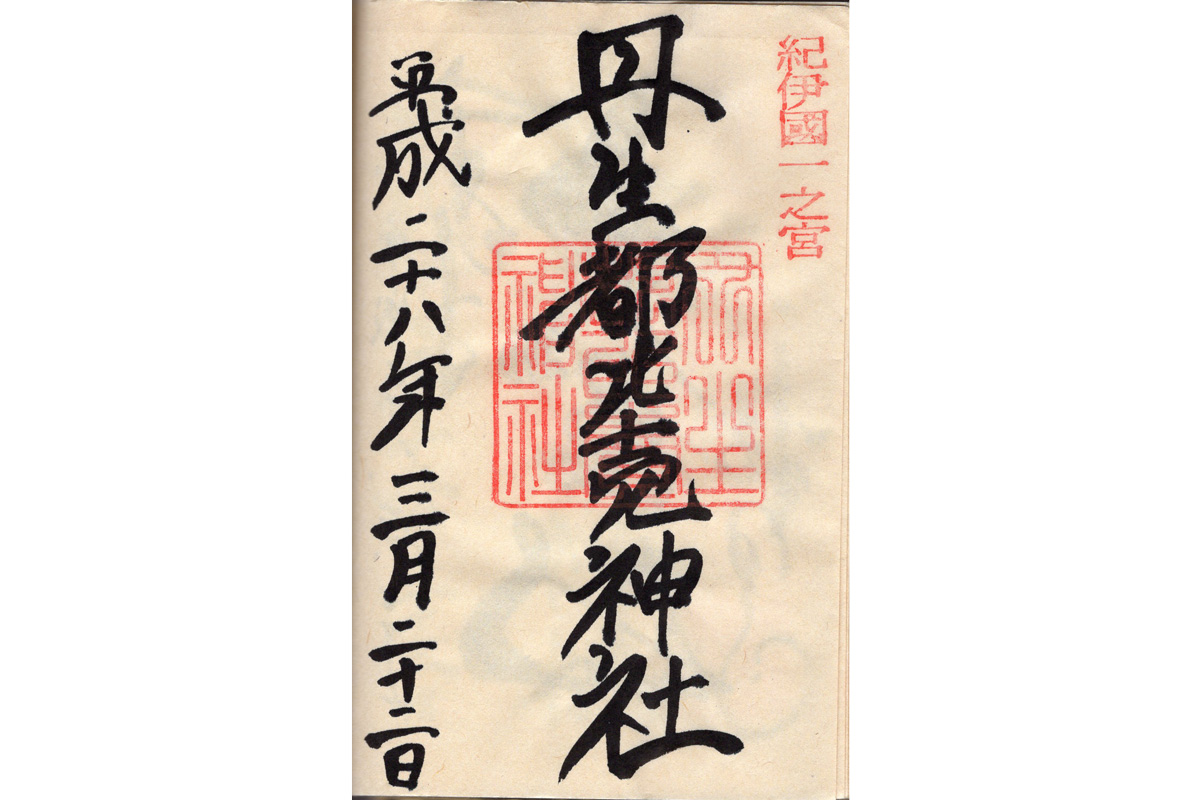 紀伊國一之宮
丹生都比売神社
丹生都比賣神社
平成二十八年三月二十二日